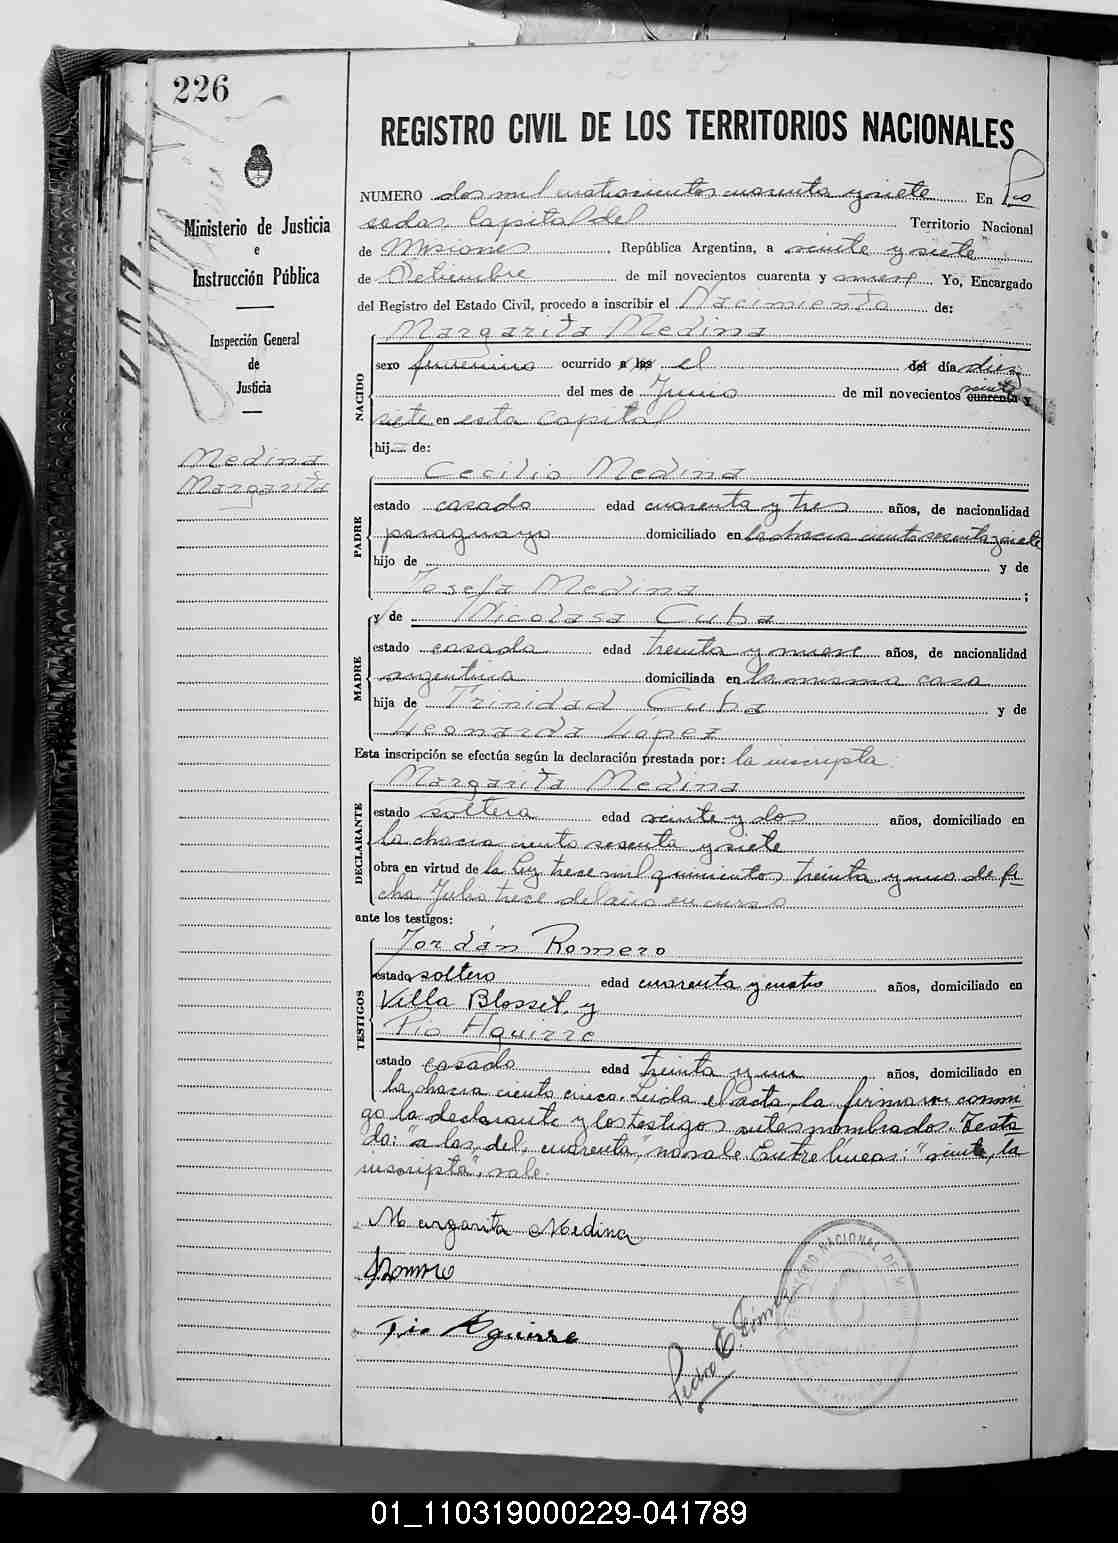 226
Ministerio de Justicia
e
Instrucción Pública
Inspección General
de
Justicia
Medina
Margarita
REGISTRO CIVIL DE LOS TERRITORIOS NACIONALES
NUMERO dos mil cuatrocientos cuarenta y siete En Po
sadas, Capital del Territorio Nacional
de Misiones República Argentina, a veinte y siete
de Setiembre de mil novecientos cuarenta y nueve Yo, Encargado
del Registro del Estado Civil, procedo a inscribir el Nacimiento de:
NACIDO
Margarita Medina
sexo femenino ocurrido a las el del día diez
del mes de Junio de mil novecientos cuarenta veinte y
siete en esta capital
hij de:
PADRE
Cecilio Medina
estado casado edad cuarenta y tres años, de nacionalidad
paraguayo domiciliado en la chacra ciento sesenta y siete
hijo de y de
Josefa Medina ;
MADRE
y de Nicolasa Cuba
estado casada edad treinta y nueve años, de nacionalidad
argentina domiciliada en la misma casa
hija de Trinidad Cuba y de
Leonarda López
Esta inscripción se efectúa según la declaración prestada por: la inscripta.
DECLARANTE
Margarita Medina
estado soltera edad veinte y dos años, domiciliado en
la chacra ciento sesenta y siete
obra en virtud de la ley trece mil quinientos treinta y uno de fe-
cha Julio trece del año en curso
ante los testigos:
TESTIGOS
Jordán Romero
estado soltero edad cuarenta y cuatro años, domiciliado en
Villa Blosset, y
Pío Aguirre
estado casado edad treinta y un años, domiciliado en
la chacra ciento cinco. Leída el acta, la firmaron conmi-
go la declarante y los testigos antes nombrados. Testa-
do: "a las, del, cuarenta", no vale. Entre líneas: "veinte, la
inscripta", vale.
Margarita Medina
JRomero
Pio Aguirre
Pedro E. Gómez
01_110319000229-041789